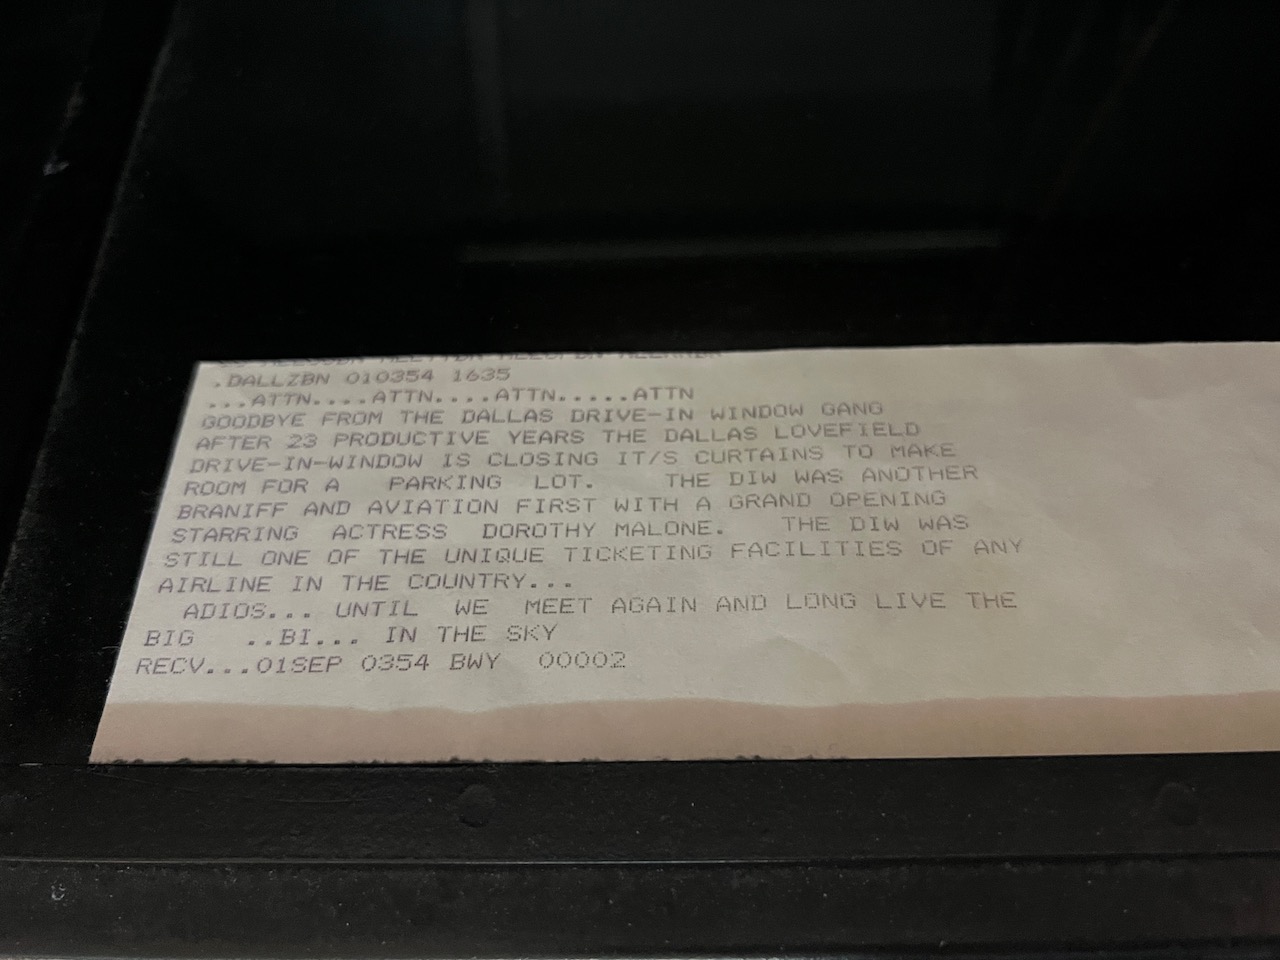 .DALLZBN 010354 1635
...ATTN....ATTN....ATTN.....ATTN
GOODBYE FROM THE DALLAS DRIVE-IN WINDOW GANG
AFTER 23 PRODUCTIVE YEARS THE DALLAS LOVEFIELD
DRIVE-IN-WINDOW IS CLOSING IT/S CURTAINS TO MAKE
ROOM FOR A PARKING LOT. THE DIW WAS ANOTHER
BRANIFF AND AVIATION FIRST WITH A GRAND OPENING
STARRING ACTRESS DOROTHY MALONE. THE DIW WAS
STILL ONE OF THE UNIQUE TICKETING FACILITIES OF ANY
AIRLINE IN THE COUNTRY...
ADIOS... UNTIL WE MEET AGAIN AND LONG LIVE THE
BIG ..BI... IN THE SKY
RECV...01SEP 0354 BWY 00002